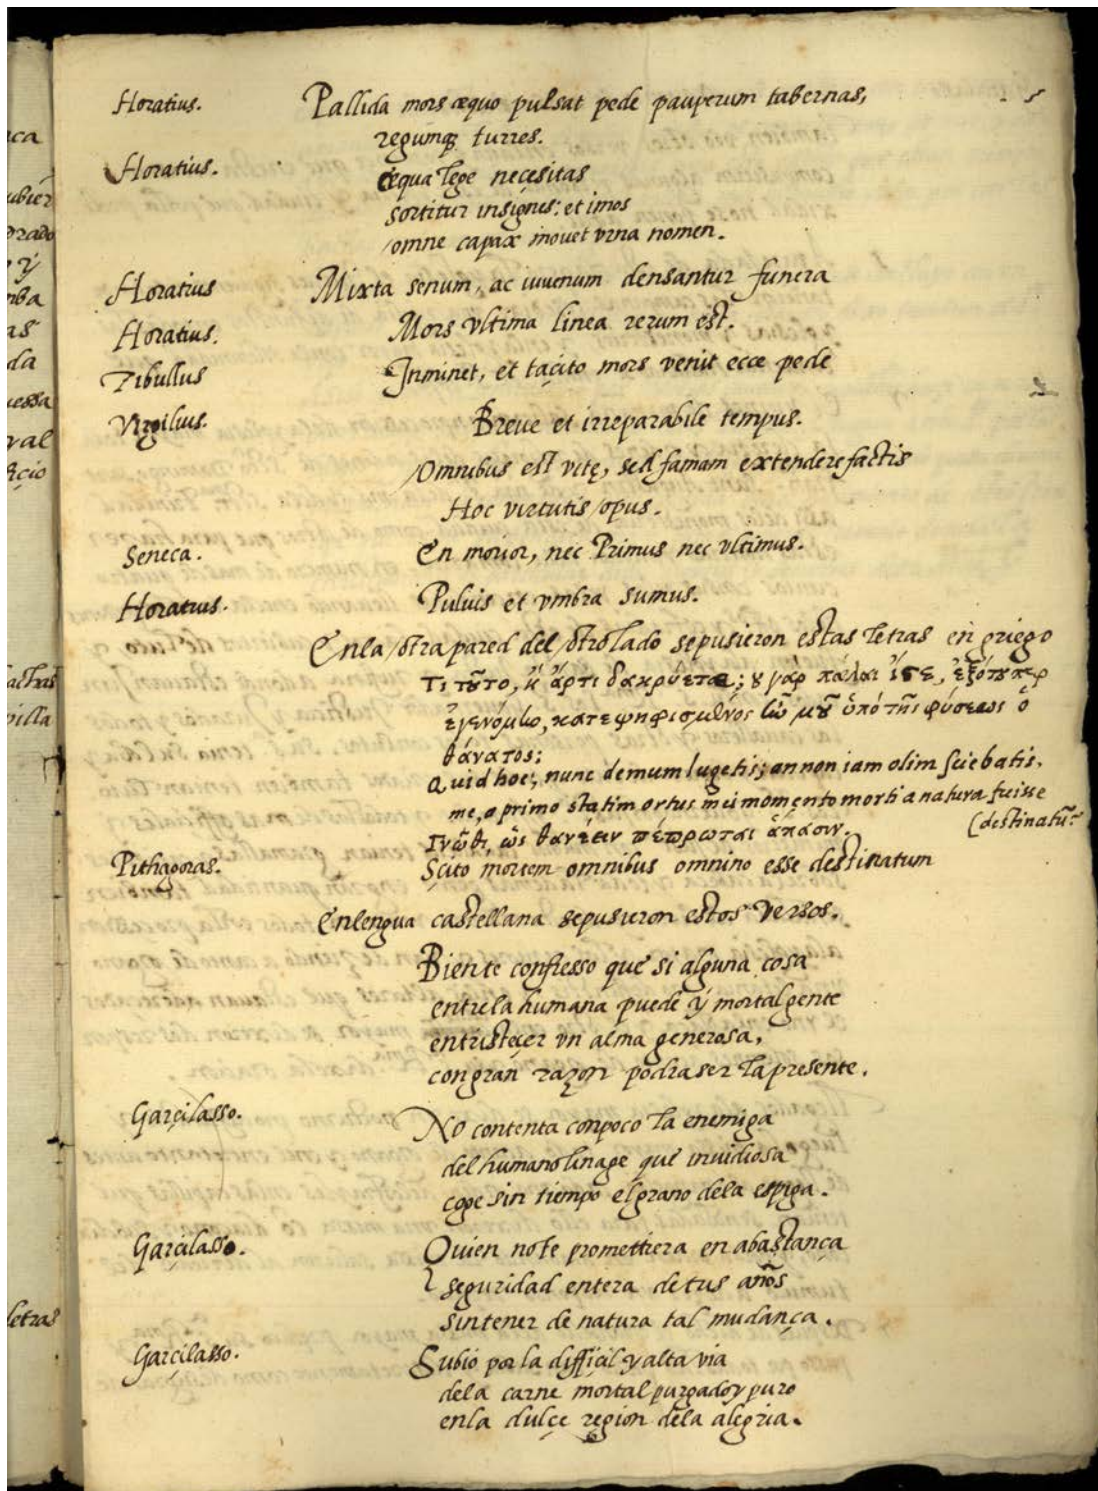 Horatius. Pallida mors æquo pulsat pede pauperum tabernas,
regumq; turres.
Horatius. Æqua lege neçesitas
sortitur insignes; et imos
omne capax mouet vrna nomen.
Horatius Mixta senum, ac iuuenum densantur funera
Horatius. Mors vltima linea rerum est.
Tibullus Inminet, et taçito mors venit ecce pede
Virgilius. Breue et irreparabile tempus.
Omnibus est vitę, sed famam extendere factis
Hoc virtutis opus.
Seneca. En morior, nec Primus nec vltimus.
Horatius. Puluis et vmbra sumus.
Enla otra pared del otro lado sepusieron estas letras en griego
Τι τȣ͂το, ἢ ἄρτι δακρύετε; ȣ γὰρ πάλαι ἴστε, ἐξότȣπερ
ἐγενόμlω, κατεψηφισμένος lῶ μȣ͂ ὑπὸ τῆς φύσεως ὁ
θάνατος;
Quid hoc, nunc demum lugetis; an non iam olim sciebatis,
me, a primo statim ortus mei momento morti a natura fuisse
(destinatũ?
Γνῶθι, ὡς θανέειν πέπρωται ἅπασιν.
Pithagoras. Sçito mortem omnibus omnino esse destinatum
Enlengua castellana sepusieron estos versos.
Biente confiesso que si alguna cosa
entrela humana puede y mortal gente
entristeçer vn alma generosa,
con gran razon podra ser la presente.
Garçilasso. No contenta con poco la enemiga
del humano linage que inuidiosa
coge sin tiempo el grano dela espiga.
Garçilasso. Quien no te promettiera en abastança
seguridad entera de tus años
sin tener de natura tal mudança.
Garçilasso. Subio por la diffiçil y alta via
dela carne mortal purgado y puro
enla dulçe region dela alegria.